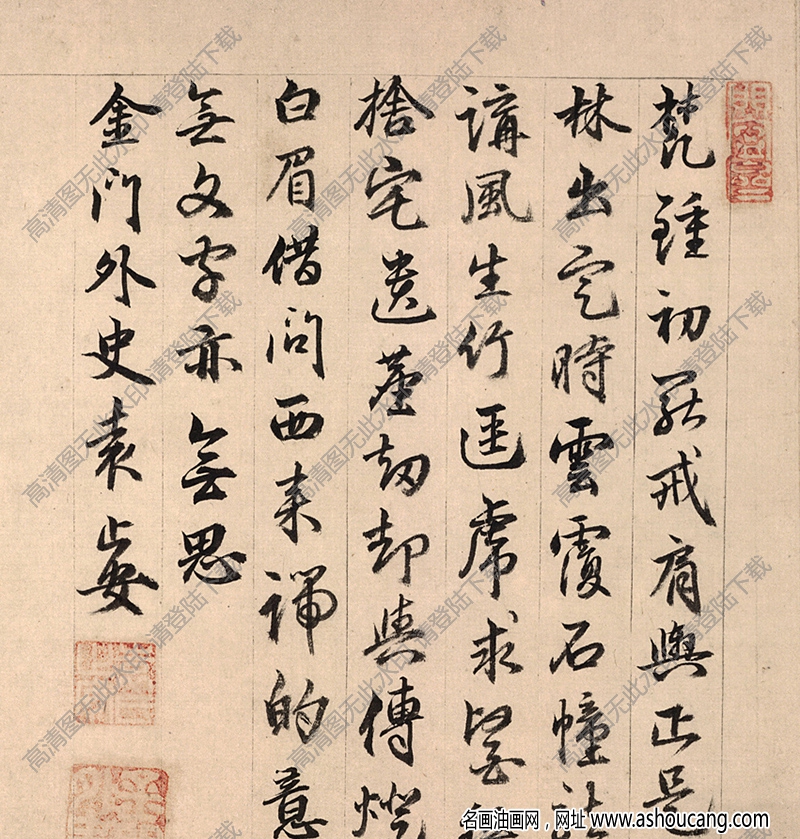 梵鍾初罷戒肩輿正是
林出定時雲覆石幢
講風生竹逕虎求醫
捨宅遺劫却與傳燈
白眉借問西來諦的意
無文字亦無思
金門外史袁
名画油画网，网址 www.ashoucang.com
高清图无此水印请登陆下载